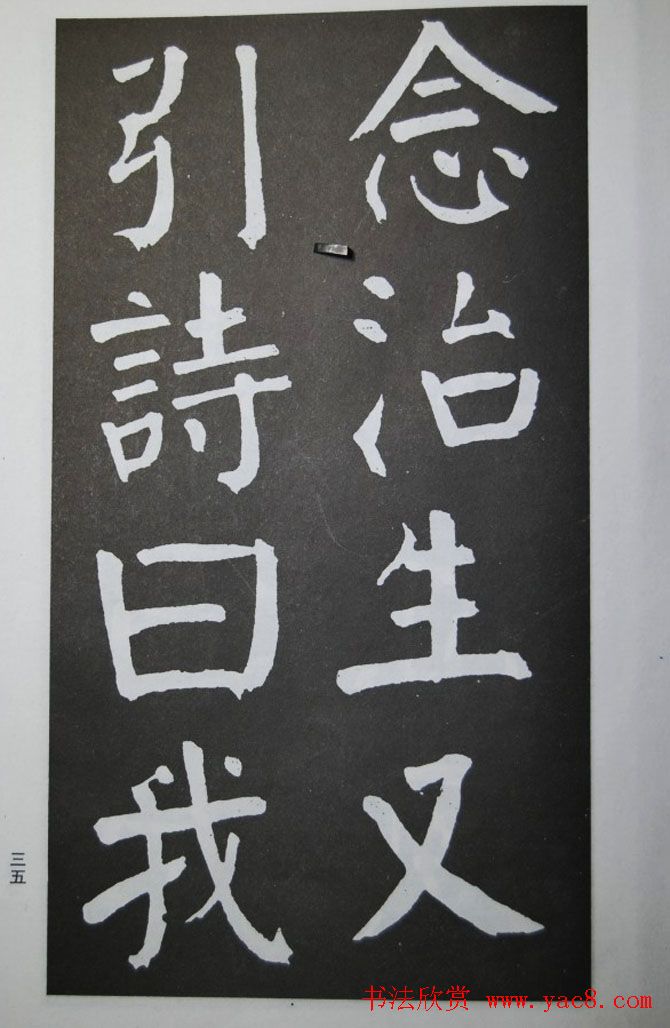 念治生又
引詩曰我
三五
书法欣赏 www.yac8.com